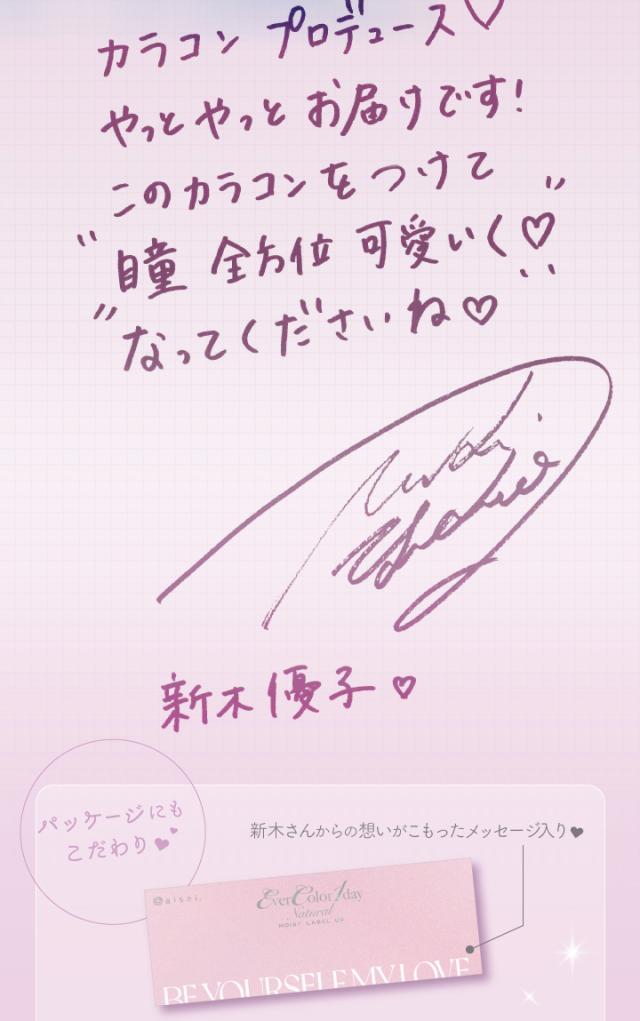 カラコン プロデュース♡
やっとやっと お届けです!
このカラコンを つけて
"瞳 全方位 可愛いく♡"
なってくださいね♡
新木優子♡
パッケージにも
こだわり♥
新木さんからの想いがこもったメッセージ入り♥
@aisei.
EverColor1day
Natural
MOIST LABEL UV
BE YOURSELF MY LOVE